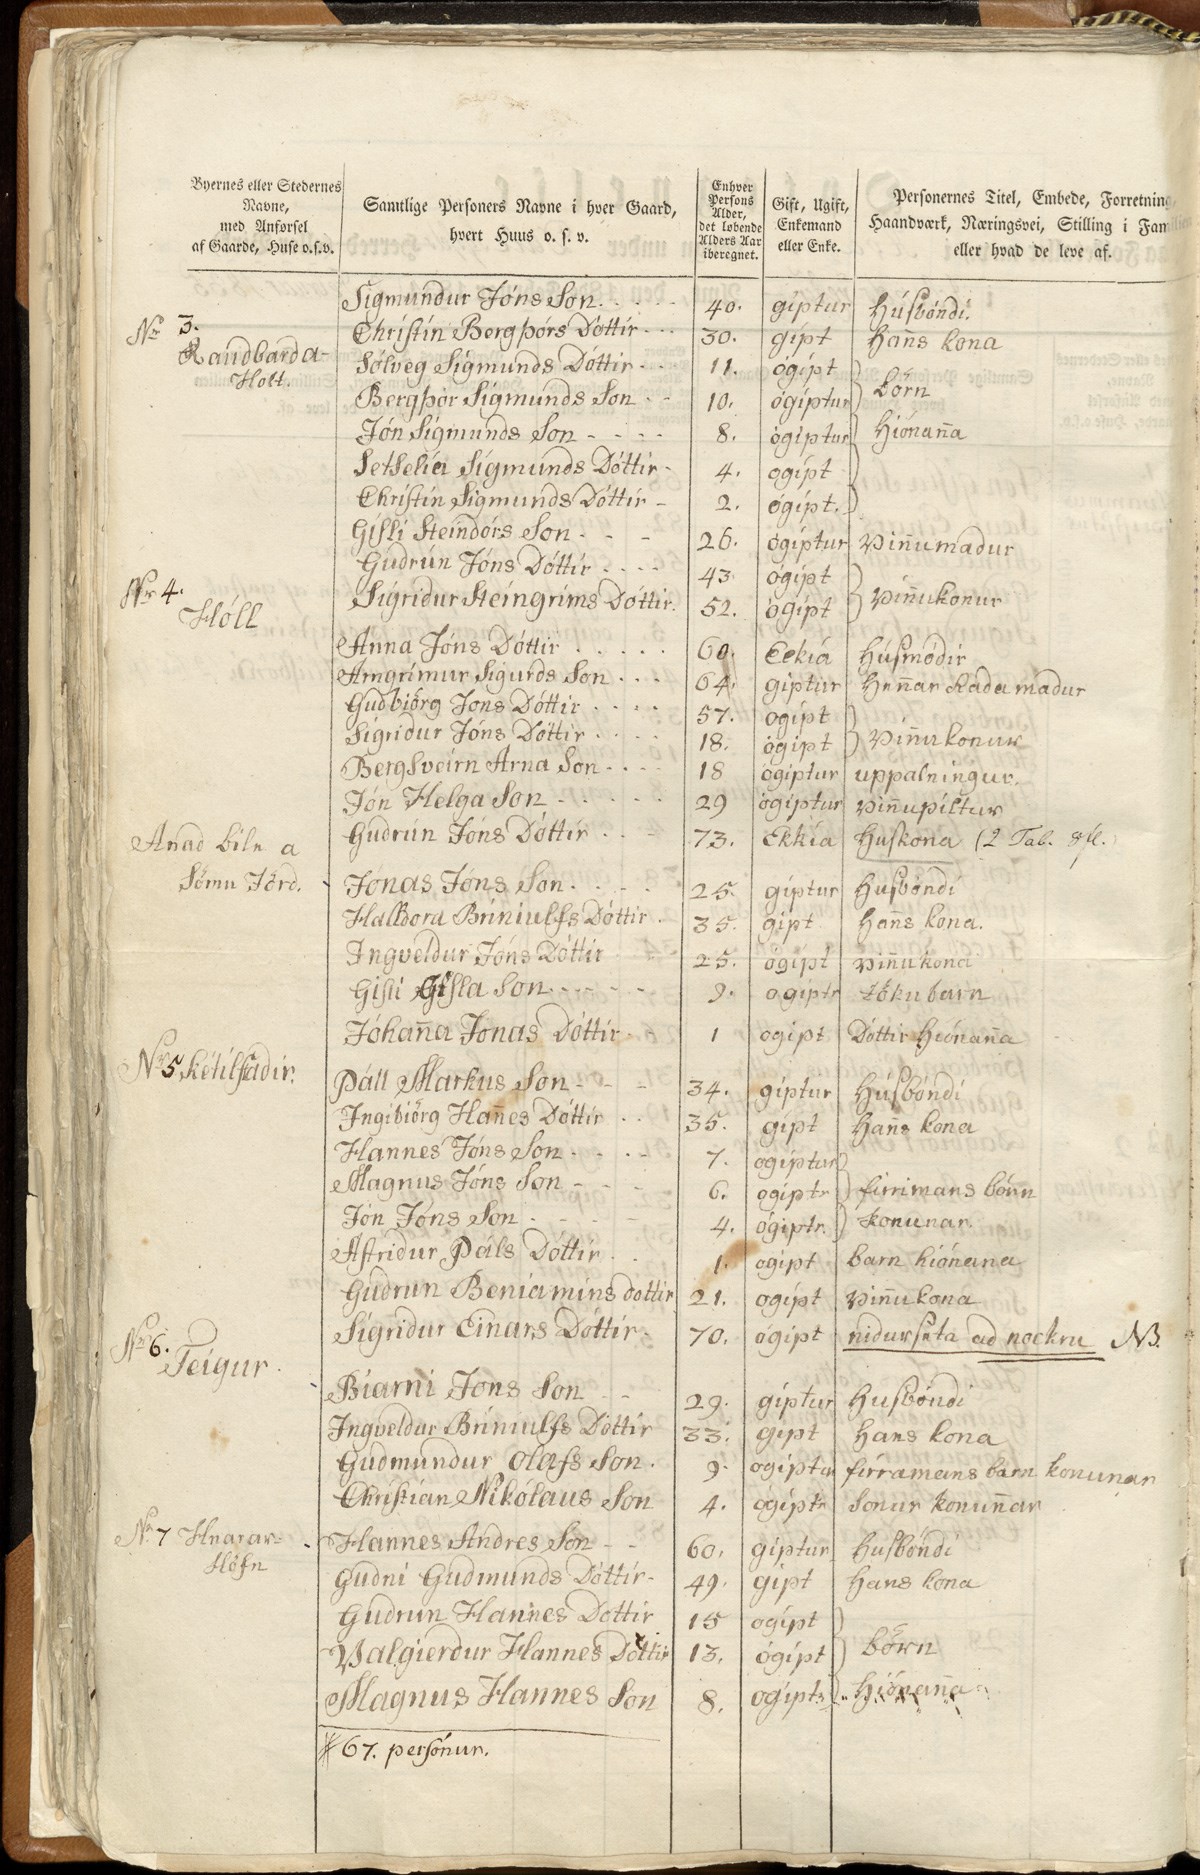 Byernes eller Stedernes Navne, med Anførsel af Gaarde, Huse o.s.v.
Samtlige Personers Navne i hver Gaard, hvert Huus o. s. v.
Enhver Persons Alder, det løbende Alders Aar iberegnet.
Gift, Ugift, Enkemand eller Enke.
Personernes Titel, Embede, Forretning, Haandværk, Næringsvei, Stilling i Familien eller hvad de leve af.
Sigmundur Jóns Son 40. giptur Húsbóndi.
No 3. Christin Bergþórs Dóttir 30. gipt hans kona
Raudbarda- Sólveg Sigmunds Dóttir 11. ógipt
Holt. Bergþór Sigmunds Son 10. ógiptur börn
Jón Sigmunds Son 8. ógiptur Hiónaña
Setselia Sigmunds Dóttir 4. ógipt
Christin Sigmunds Dóttir 2. ógipt.
Gisli Steindórs Son 26. ógiptur viñumadur
Gudrún Jóns Dóttir 43. ógipt
No 4. Sigridur Steingrims Dóttir. 52. ógipt viñukonur
Hóll
Anna Jóns Dóttir 60. Eckia Húsmódir
Arngrimur Sigurds Son 64. giptur Heñar Radamadur
Gudbiörg Jóns Dóttir 57. ogipt
Sigridur Jóns Dóttir 18. ógipt viñukonur
Bergsveirn Arna Son 18 ógiptur uppalningur.
Jón Helga Son 29 ógiptur viñupiltur
Gudrún Jóns Dóttir 73. Ekkia Huskona (2 Tab.
Anad bile a
Sömu Jörd. Jónas Jóns Son 25. giptur Husbóndi
Halldora Briniulfs Dóttir 35. gipt hañs kona.
Ingveldur Jóns Dóttir 25. ógipt viñukona
Gisli Gisla Son 9. ogiptr tökubarn
Jóhaña Jonas Dóttir 1 ogipt Dóttir Hiónaña
No 5 Ketilstadir. Páll Markus Son 34. giptur Húsbóndi
Ingibiörg Hañes Dóttir 35. gipt hañs kona
Hannes Jóns Son 7. ogiptur
Magnus Jóns Son 6. ogiptr firrimans börn
Jón Jóns Son 4. ógiptr. konunar.
Astridur Páls Dóttir 1. ogipt barn hiónana
Gudrun Beniamins dottir 21. ogipt viñukona
Sigridur Einars Dóttir 70. ógipt nidurseta ad nockru NB.
No 6.
Teigur.
Biarni Jons Son 29. giptur husbóndi
Ingveldur Briniulfs Dóttir 33. gipt hans kona
Gudmundur Olafs Son. 9. ogiptur firramans barn konunar
Christian Nikólaus Son 4. ógiptr Sonur konuñar
No 7 Hvarar- Hannes Andres Son 60. giptur Husbóndi
Höfn Gudni Gudmunds Dóttir 49. gipt hans kona
Gudrun Hannes Dottir 15 ogipt
Valgierdur Hannes Dóttir 13. ógipt börn
Magnus Hannes Son 8. ogiptr Hiónaña
67. persónur.